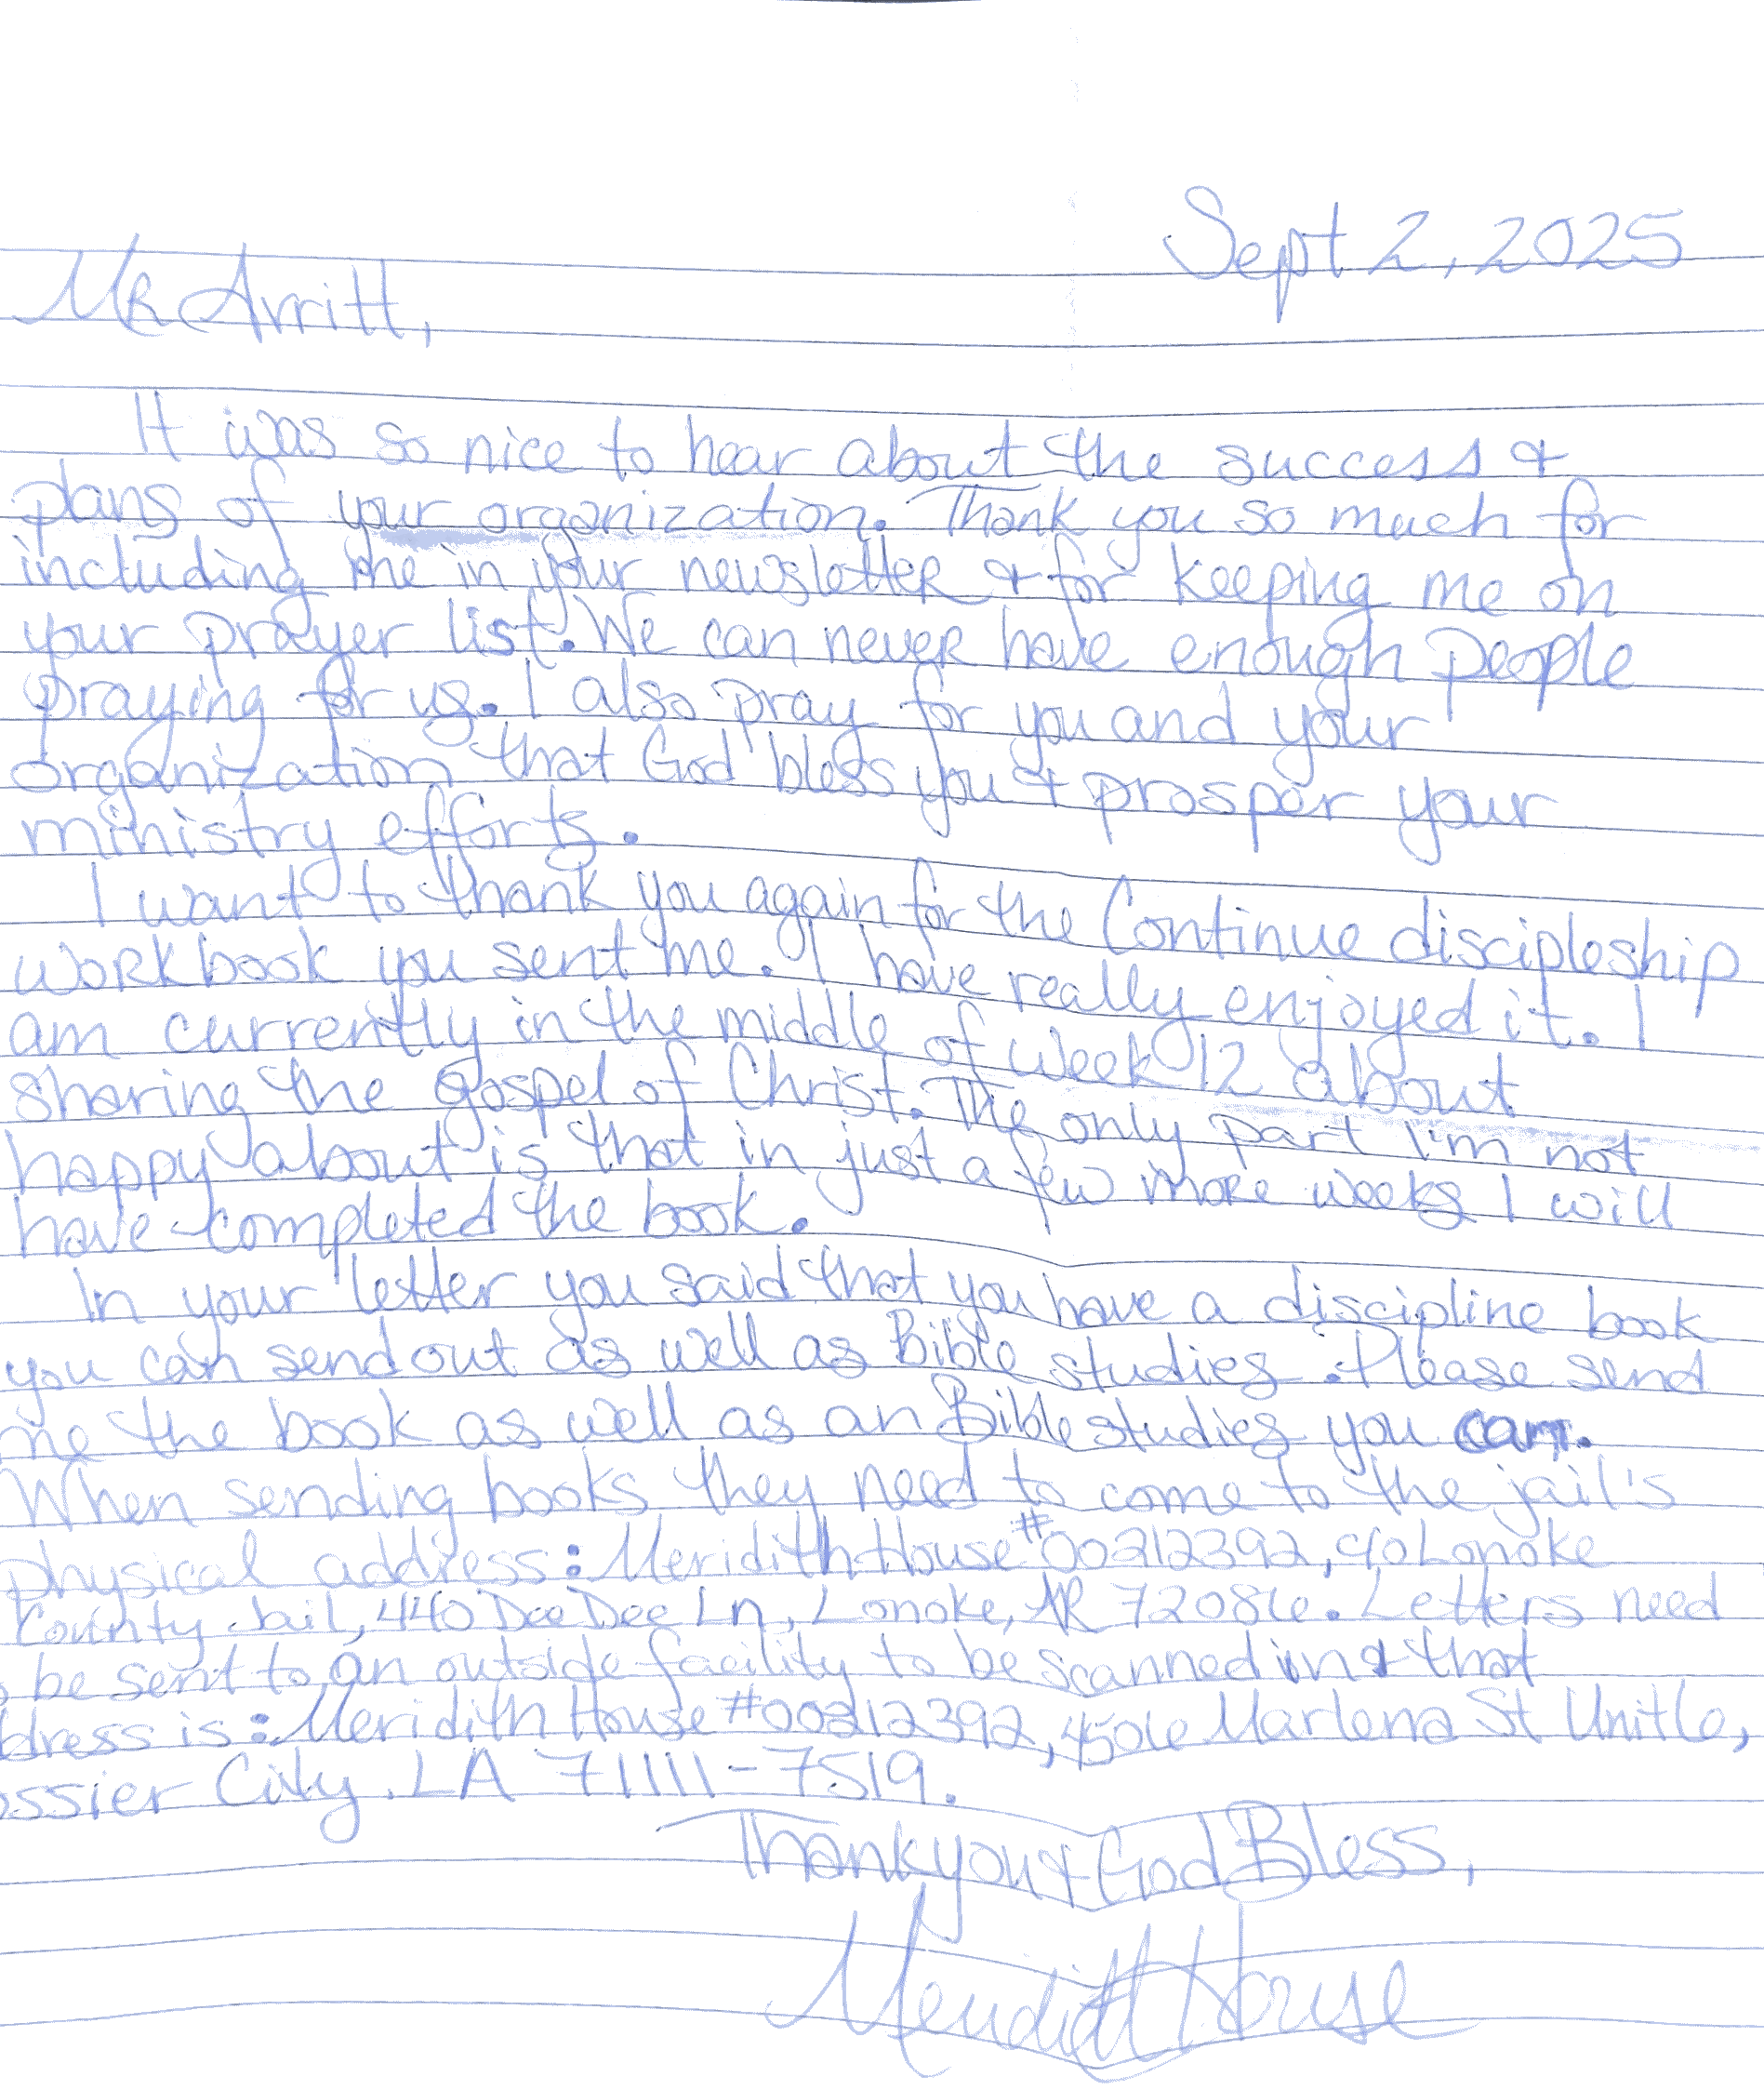 Sept 2, 2025
MR Arritt,
It was so nice to hear about the success &
plans of your organization. Thank you so much for
including me in your newsletter & for keeping me on
your prayer list. We can never have enough people
praying for us. I also pray for you and your
organization that God bless you & prosper your
ministry efforts.
I want to thank you again for the Continue discipleship
workbook you sent me. I have really enjoyed it. I
am currently in the middle of week 12 about
sharing the gospel of Christ. The only part I'm not
happy about is that in just a few more weeks I will
have completed the book.
In your letter you said that you have a discipline book
you can send out as well as Bible studies. Please send
me the book as well as an Bible studies you can.
When sending books they need to come to the jail's
physical address: Meridith House #00212392, c/o Lonoke
County Jail, 440 Dee Dee Ln, Lonoke, AR 72086. Letters need
be sent to an outside facility to be scanned in & that
dress is: Meridith House #00212392, 4506 Marlena St Unit 6,
ossier City. LA 71111-7519.
Thank you & God Bless,
Meridith House